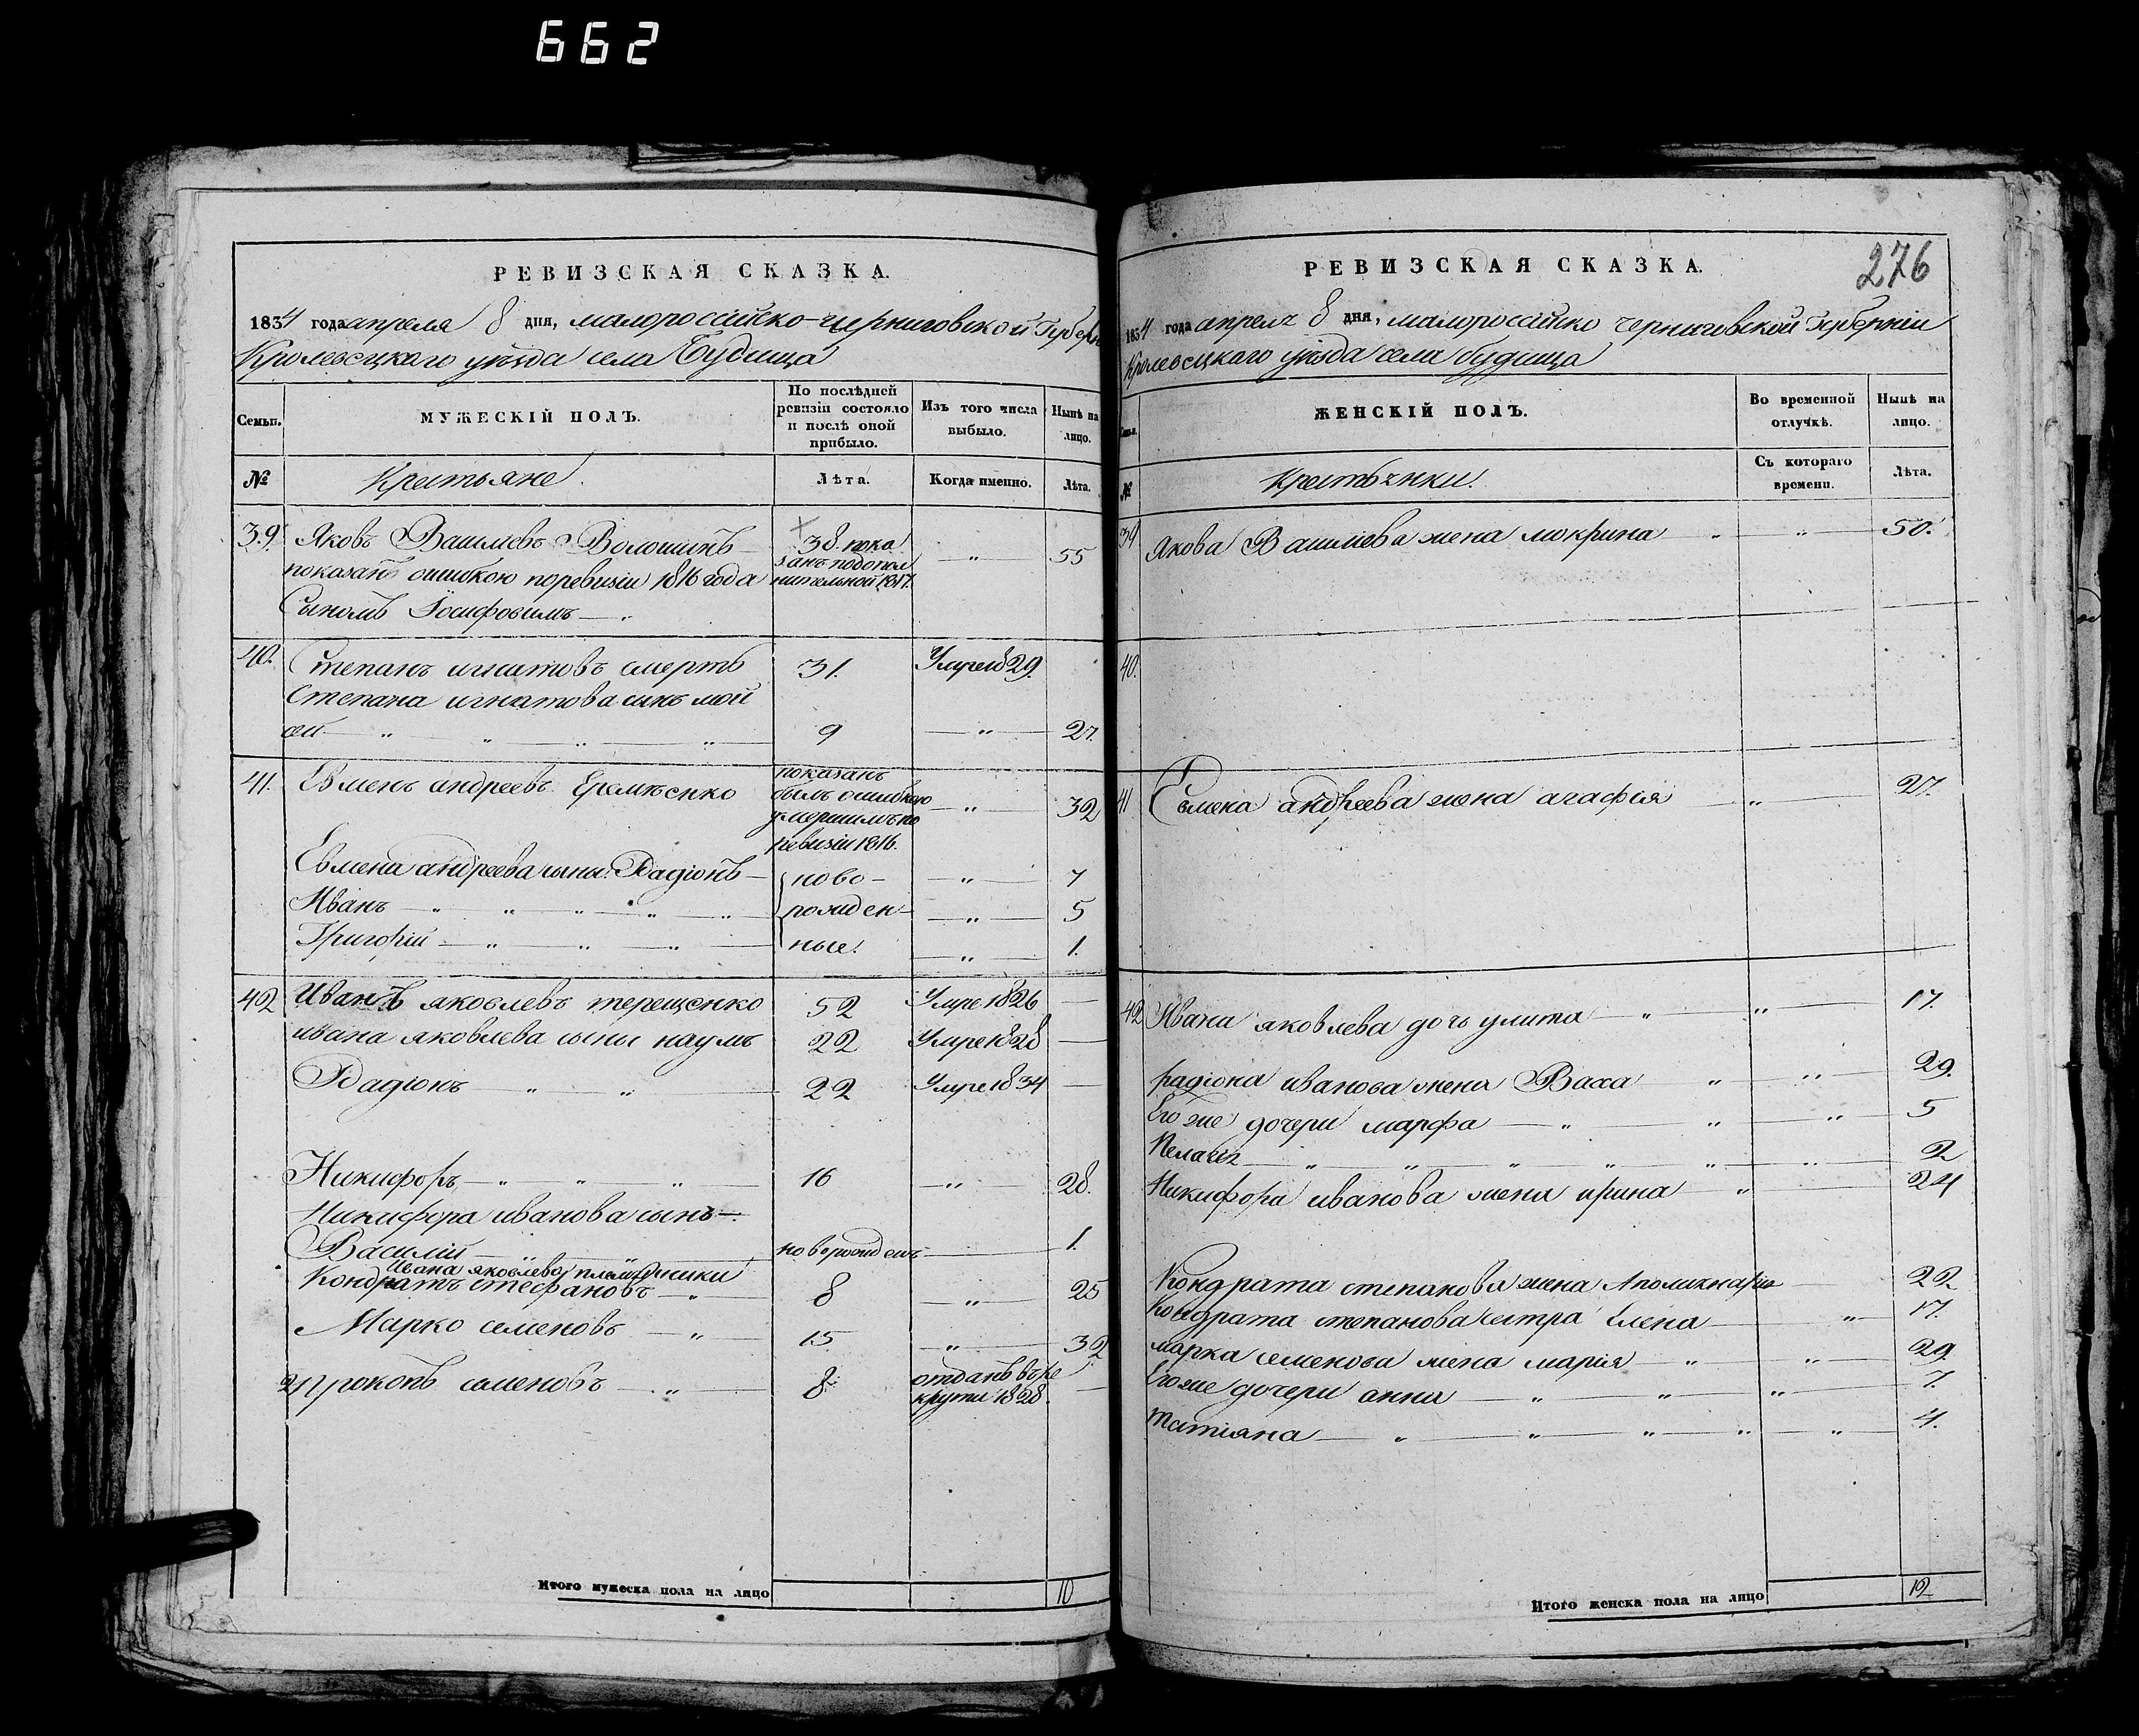 662
РЕВИЗСКАЯ СКАЗКА.
1834 года апреля 8 дня, малороссійско-черниговской Губерн
Кролевецкаго уѣзда села Будища
Семьи.
МУЖЕСКІЙ ПОЛЪ.
По послѣдней ревизіи состояло и послѣ оной прибыло.
Изъ того числа выбыло.
Нынѣ на лицо.
№
Крестьяне.
Лѣта.
Когда именно.
Лѣта.
39. Яковъ Василиевъ Волошинъ — 38. пока — " — 55
показанъ ошибкою поревизіи 1816 года занъ подопол
Сыномъ Іосифовимъ — " нительной 1817.
40. Степанъ игнатовъ смерть 31. Умре 1829.
Степана игнатова сынъ мой
сей — " — " — " — " — 9 — " — 27.
41. Евменъ андреевъ Еремѣенко показанъ былъ ошибкою умершимъ по ревизіи 1816. — " — 32
Евмена андреева сыны: Радіонъ — ново- — " — 7
Иванъ — " — " — " — " — " рожден- — " — 5
Григорій — " — " — " — ные. — " — 1.
42 Иванъ яковлевъ терещенко 52 Умре 1826 —
ивана яковлева сыны наумъ 22 Умре 1828 —
Радіонъ " — " — 22 Умре 1834 —
Никифоръ — " — " — " — 16 — " — 28.
Никифора иванова сынъ —.
Василій — " — " — новорожденъ — 1.
Ивана яковлева племянники
Кондратъ стефановъ — " — 8 — " — 25
Марко семеновъ — " — 15. — " — 32
2 Прокопъ семеновъ — " — 8. отданъ въ ре —
круты 1828.
Итого мужеска пола на лицо 10
РЕВИЗСКАЯ СКАЗКА.
276
1834 года апреля 8 дня, малороссійско черниговской Губерніи
Кролевецкаго уѣзда села будища
ЖЕНСКІЙ ПОЛЪ.
Во временной отлучкѣ.
Нынѣ на лицо.
№
Крестьянки.
Съ котораго времени.
Лѣта.
39 Якова Василиева жена мокрина " — " — 50.
40.
41 Евмена андреева жена агафія — " — 27.
42 Ивана яковлева дочь улита — " — " — 17.
радіона иванова жена Васса — " — " — 29.
Его же дочери марфа — " — " — " — 5
Пелагія — " — " — " — " — " — " — 2
Никифора иванова жена ирина — " — 24
Кондрата степанова жена Аполинарія — 22
Кондрата степанова сестра Елена — " — 17.
марка семенова жена марія — " — " — 29.
Его же дочери анна — " — " — " — 7.
Татіяна — " — " — " — " — " — 4.
Итого женска пола на лицо 12